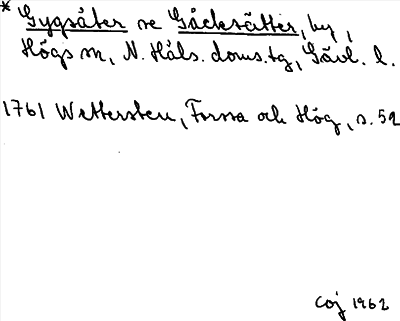 * Gygsäter se Gäcksätter, by,
Högs sn, N. Häls. doms.tg, Gävl. l.
1761 Wettersten, Forssa och Hög, s. 52
Coj 1962